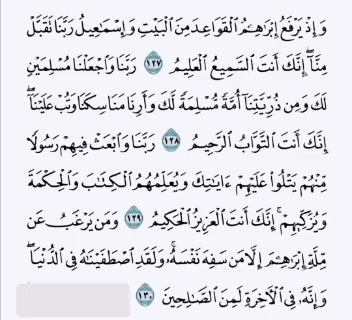 وَإِذْ يَرْفَعُ إِبْرَٰهِـۧمُ ٱلْقَوَاعِدَ مِنَ ٱلْبَيْتِ وَإِسْمَـٰعِيلُ رَبَّنَا تَقَبَّلْ
مِنَّآ ۖ إِنَّكَ أَنتَ ٱلسَّمِيعُ ٱلْعَلِيمُ ١٢٧ رَبَّنَا وَٱجْعَلْنَا مُسْلِمَيْنِ
لَكَ وَمِن ذُرِّيَّتِنَآ أُمَّةً مُّسْلِمَةً لَّكَ وَأَرِنَا مَنَاسِكَنَا وَتُبْ عَلَيْنَآ ۖ
إِنَّكَ أَنتَ ٱلتَّوَّابُ ٱلرَّحِيمُ ١٢٨ رَبَّنَا وَٱبْعَثْ فِيهِمْ رَسُولًا
مِّنْهُمْ يَتْلُوا۟ عَلَيْهِمْ ءَايَـٰتِكَ وَيُعَلِّمُهُمُ ٱلْكِتَـٰبَ وَٱلْحِكْمَةَ
وَيُزَكِّيهِمْ ۚ إِنَّكَ أَنتَ ٱلْعَزِيزُ ٱلْحَكِيمُ ١٢٩ وَمَن يَرْغَبُ عَن
مِّلَّةِ إِبْرَٰهِـۧمَ إِلَّا مَن سَفِهَ نَفْسَهُۥ ۚ وَلَقَدِ ٱصْطَفَيْنَـٰهُ فِى ٱلدُّنْيَا ۖ
وَإِنَّهُۥ فِى ٱلْـَٔاخِرَةِ لَمِنَ ٱلصَّـٰلِحِينَ ١٣٠